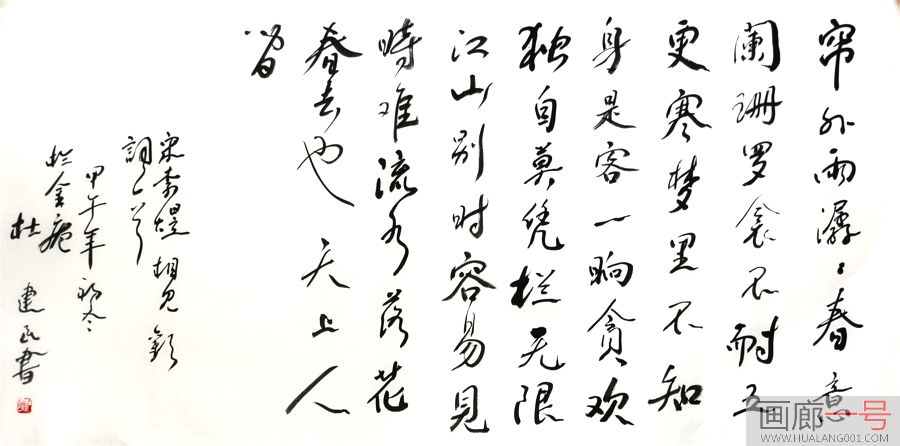 帘外雨潺々春意
阑珊罗衾不耐五
更寒梦里不知
身是客一晌贪欢
独自莫凭栏无限
江山别时容易见
時难流水落花
春去也天上人
间
宋李煜相见歡
詞一首
甲午年初冬
於金庵
杜建民書
画廊一号
WWW.HUALANG001.COM